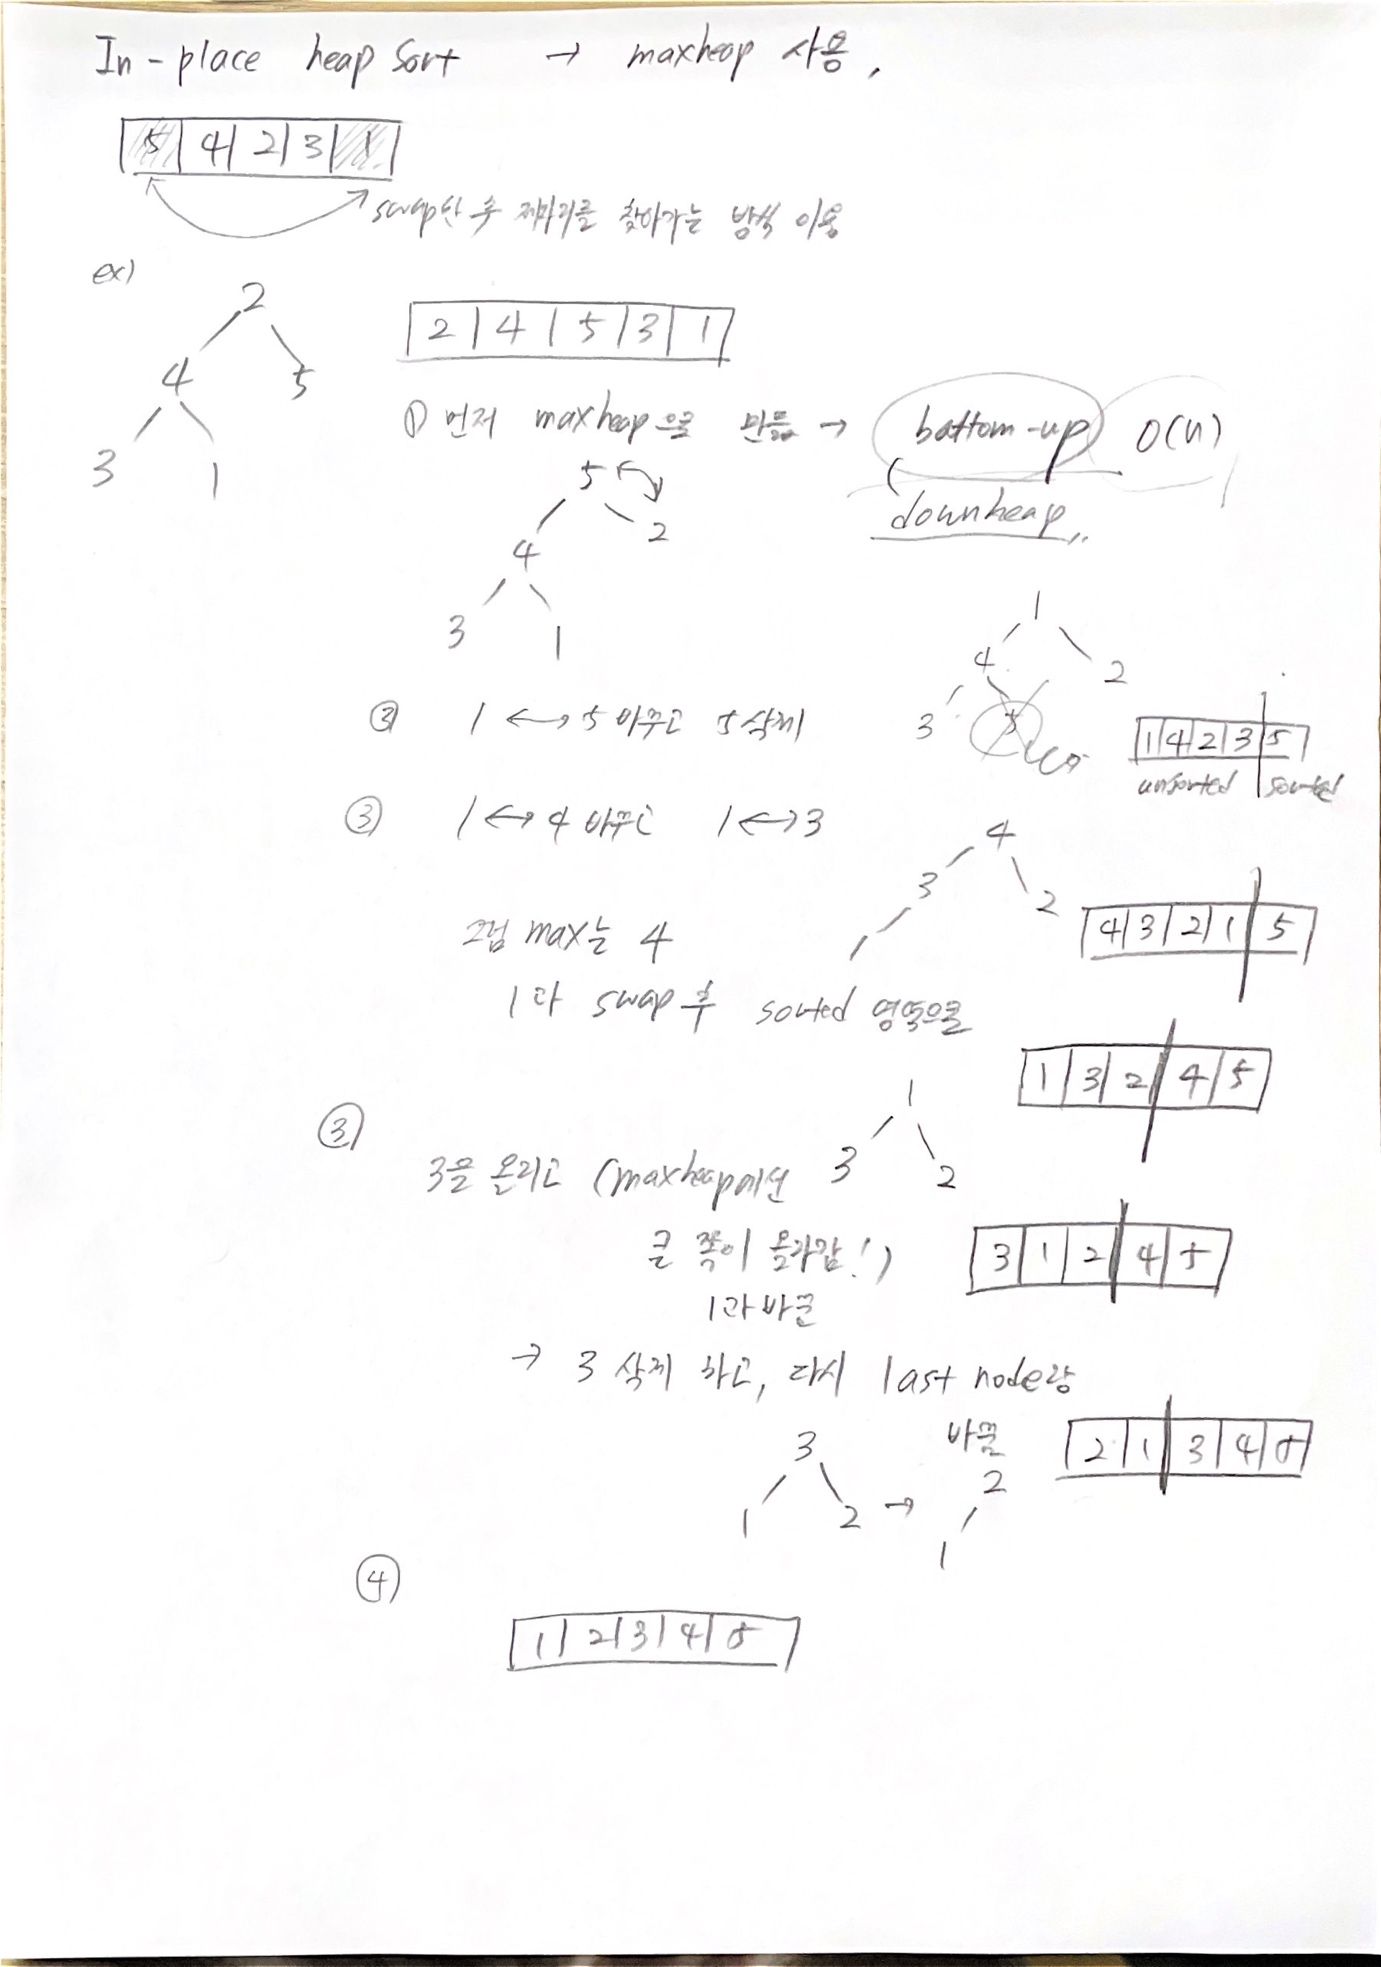 In-place heap sort → maxheap 사용.
5 4 2 3 1
swap한 후 제자리를 찾아가는 방식 이용
ex)
2
4 5
3 1
2 4 5 3 1
① 먼저 maxheap으로 만듦 → bottom-up O(n)
downheap
5
2
4
3 1
② 1 ↔ 5 바꾸고 5 삭제
1
4 2
3 5
1 4 2 3 5
unsorted sorted
③ 1 ↔ 4 바꾸고 1 ↔ 3
4
3 2
1
4 3 2 1 5
그럼 max는 4
1과 swap 후 sorted 영역으로
1 3 2 4 5
③
1
3 2
3을 올리고 (maxheap에선
큰 쪽이 올라감!)
1과 바꿈
3 1 2 4 5
→ 3 삭제 하고, 다시 last node랑
바꿈
2 1 3 4 5
3
1 2 →
2
1
④
1 2 3 4 5